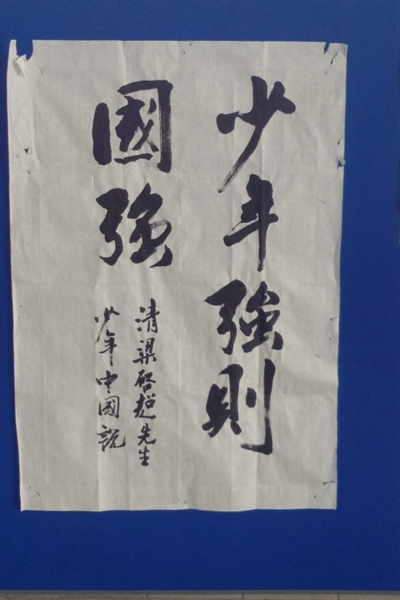 少年強則
國強
清梁啓超先生
少年中國說